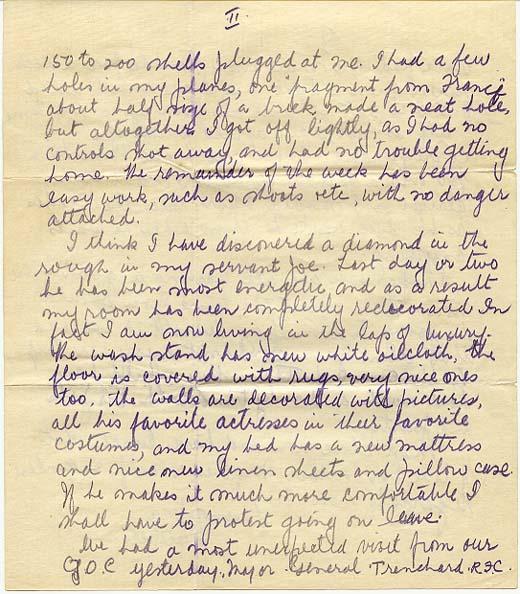 II.
150 to 200 shells plugged at me. I had a few
holes in my planes, one "fragment from France"
about half size of a brick made a neat hole,
but altogether I got off lightly, as I had no
controls shot away, and had no trouble getting
home. The remainder of the week has been
easy work, such as shoots etc, with no danger
attached.
I think I have discovered a diamond in the
rough in my servant Joe. Last day or two
he has been most energetic, and as a result
my room has been completely redecorated. In
fact I am now living in the lap of luxury.
The wash stand has new white oilcloth, the
floor is covered with rugs, very nice ones
too, the walls are decorated with pictures,
all his favorite actresses in their favorite
costumes, and my bed has a new mattress
and nice new linen sheets and pillow case.
If he makes it much more comfortable I
shall have to protest going on leave.
We had a most unexpected visit from our
G.O.C yesterday, Major-General Trenchard. RFC.